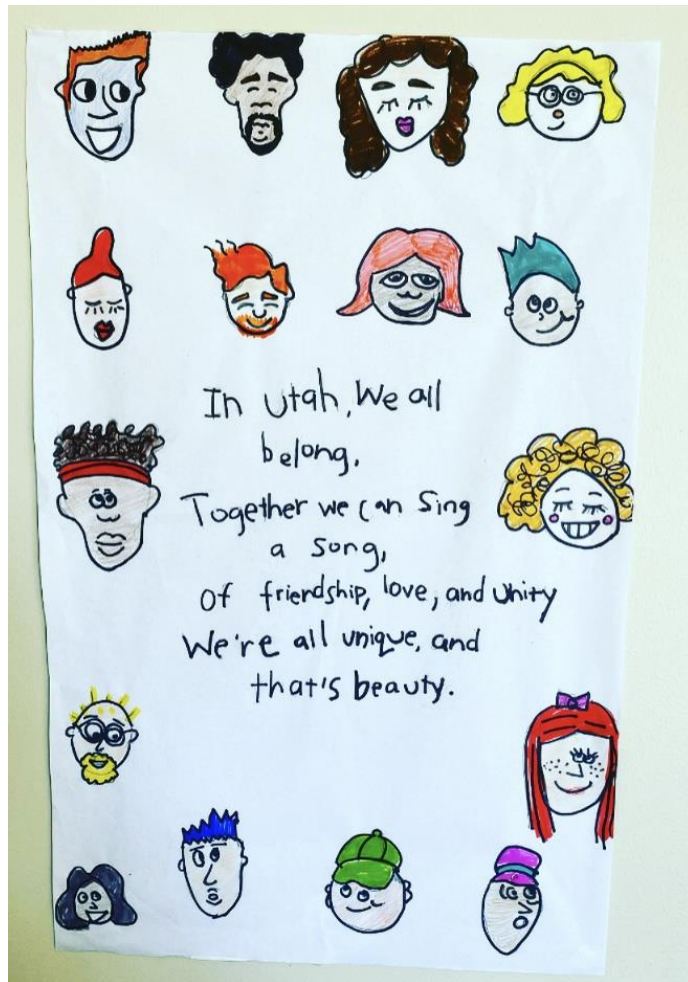 In Utah, We all
belong.
Together we can Sing
a song,
Of friendship, love, and Unity
We're all unique, and
that's beauty.